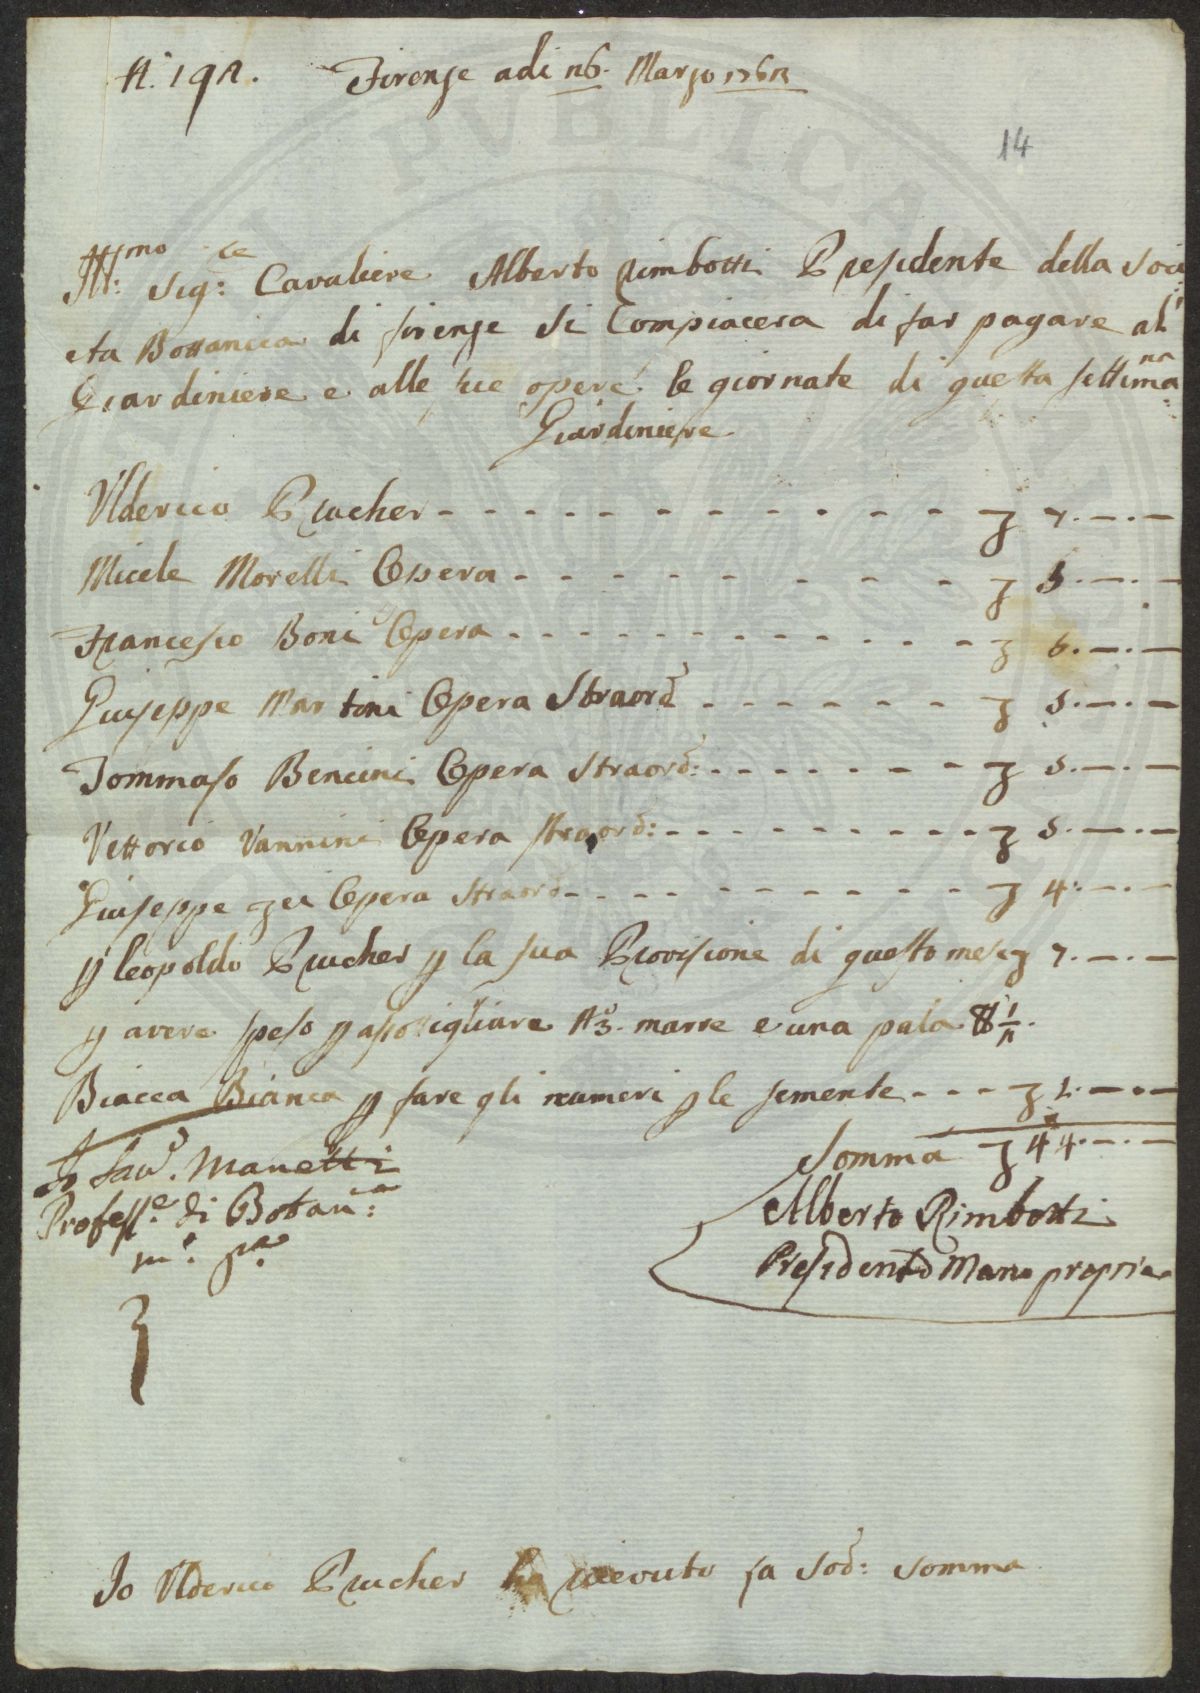 N.° 192. Firenze adi 26. Marzo 1763
14
Ill:mo Sig:re Cavaliere Alberto Rimbotti Presidente della Soci:
eta Bottanica di firenze si Compiacera di far pagare al
Giardiniere e alle sue opere le giornate di questa settima:na
Giardiniere
Ulderico Prucher - - - - - - - - - - - - - ʒ 7.—.—
Micele Morelli Opera - - - - - - - - - - ʒ 5.—.—
Francesco Boni Opera - - - - - - - - - - - ʒ 6.—.—
Giuseppe Martini Opera Straord - - - - - - - ʒ 5.—.—
Tommaso Bencini Opera Straord: - - - - - - - - ʒ 5.—.—
Vettorio Vannini Opera straord: - - - - - - - - - ʒ 5.—.—
Giuseppe Zei Opera Straord - - - - - - - - - ʒ 4.—.—
p leopoldo Prucher p la sua Provisione di questo mese ʒ 7.—.—
p avere speso p asottigliare N° 3. marre e una pala
Biacca Bianca p fare gli numeri p le semente - - - ʒ —.—
Somma ʒ 44.—.—
Io Sav.° Manetti
Profess.e di Botan:ca
m.° p.a
Alberto Rimbotti
Presidente Mano propria
Io Ulderico Prucher ho ricevuto la Sod: somma